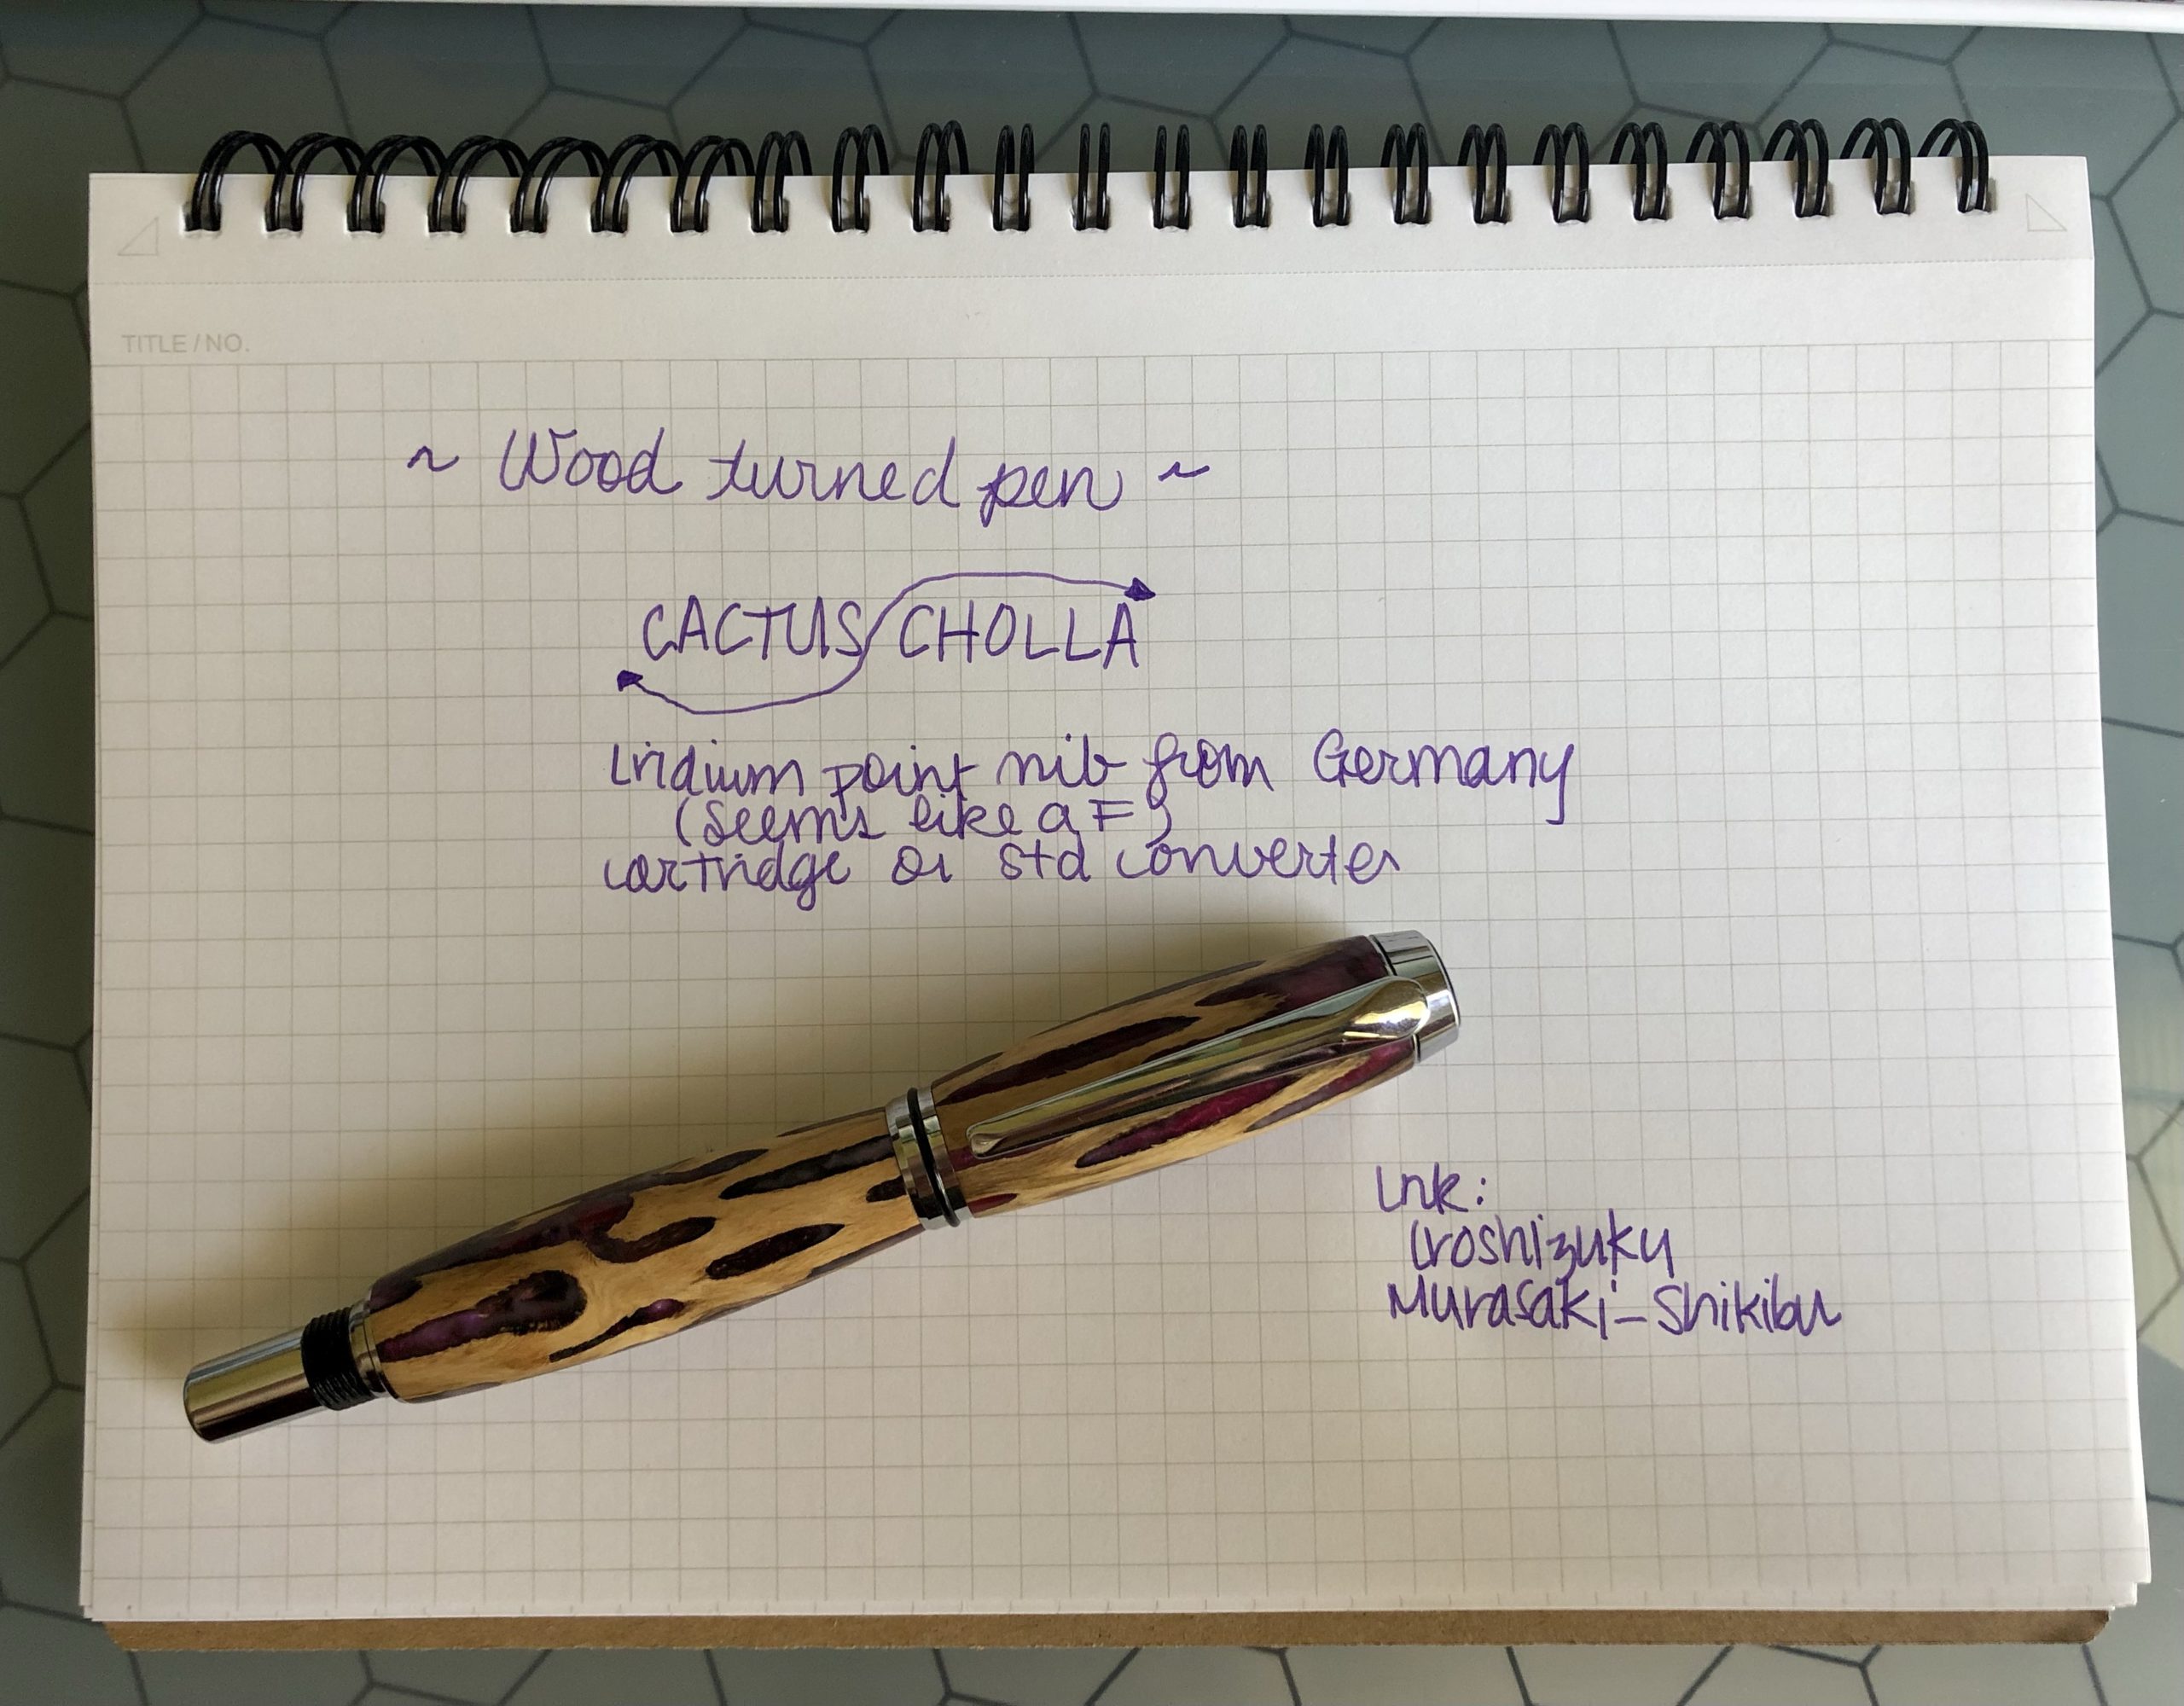 TITLE / NO.
~ Wood turned pen ~
CACTUS CHOLLA
Iridium point nib from Germany
(Seems like a F)
cartridge or std converter
Ink:
Iroshizuku
Murasaki-Shikibu